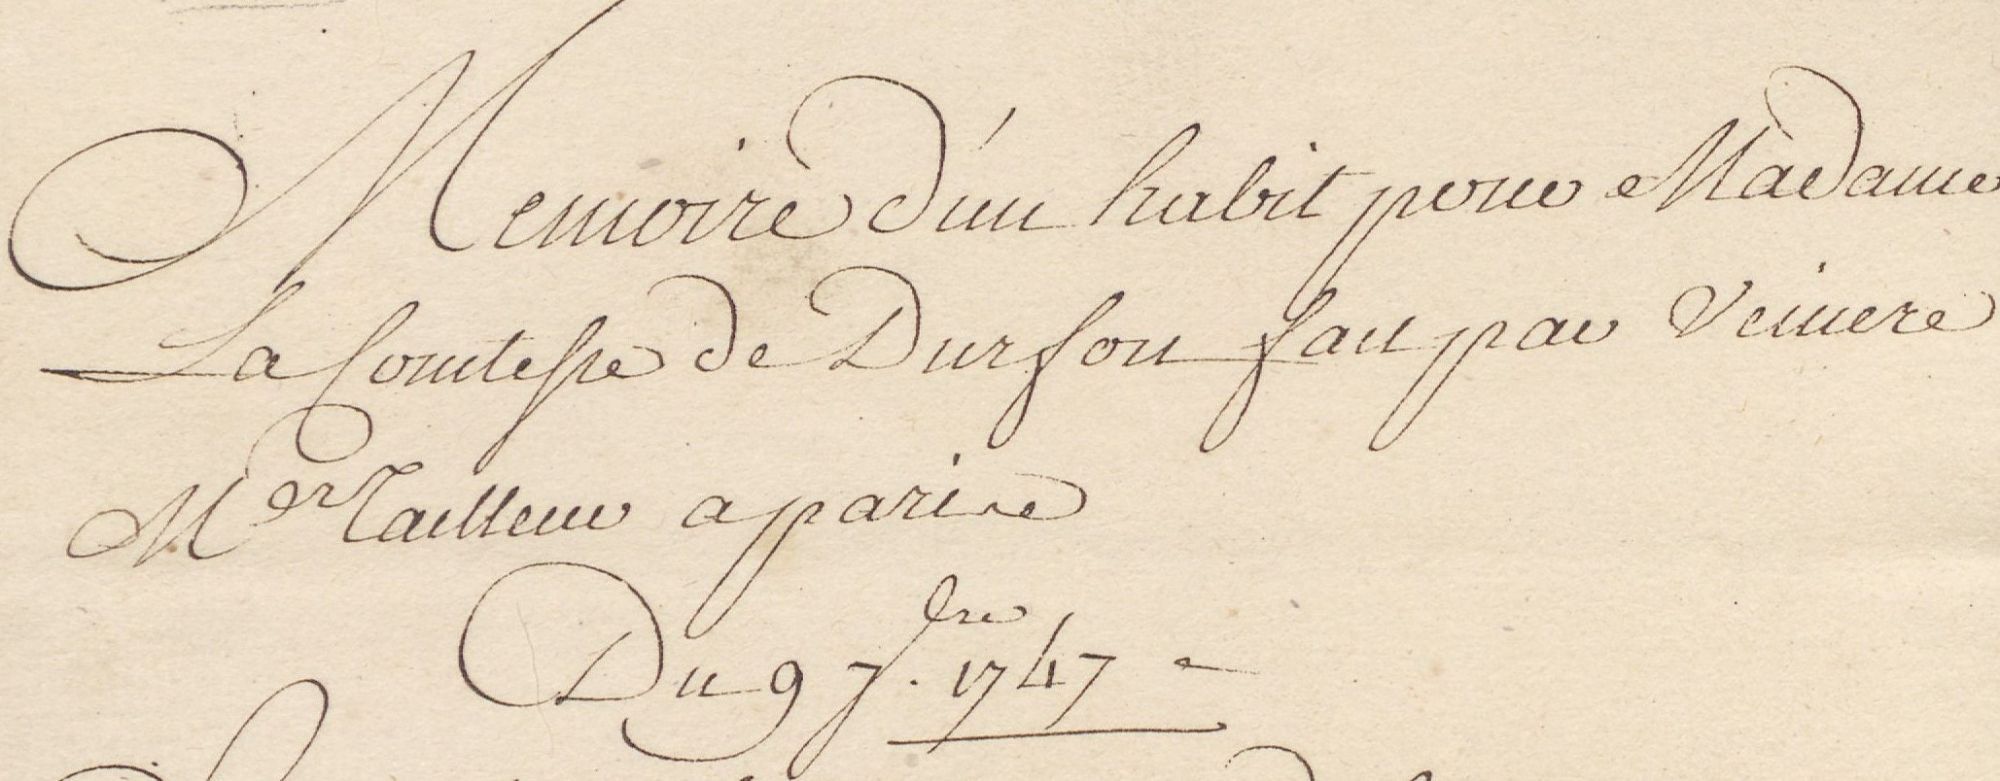 Memoire d'un habit pour Madame
La Comtesse de Durfou fait par
Mer Tailleur a paris
Du 9 7bre. 1747